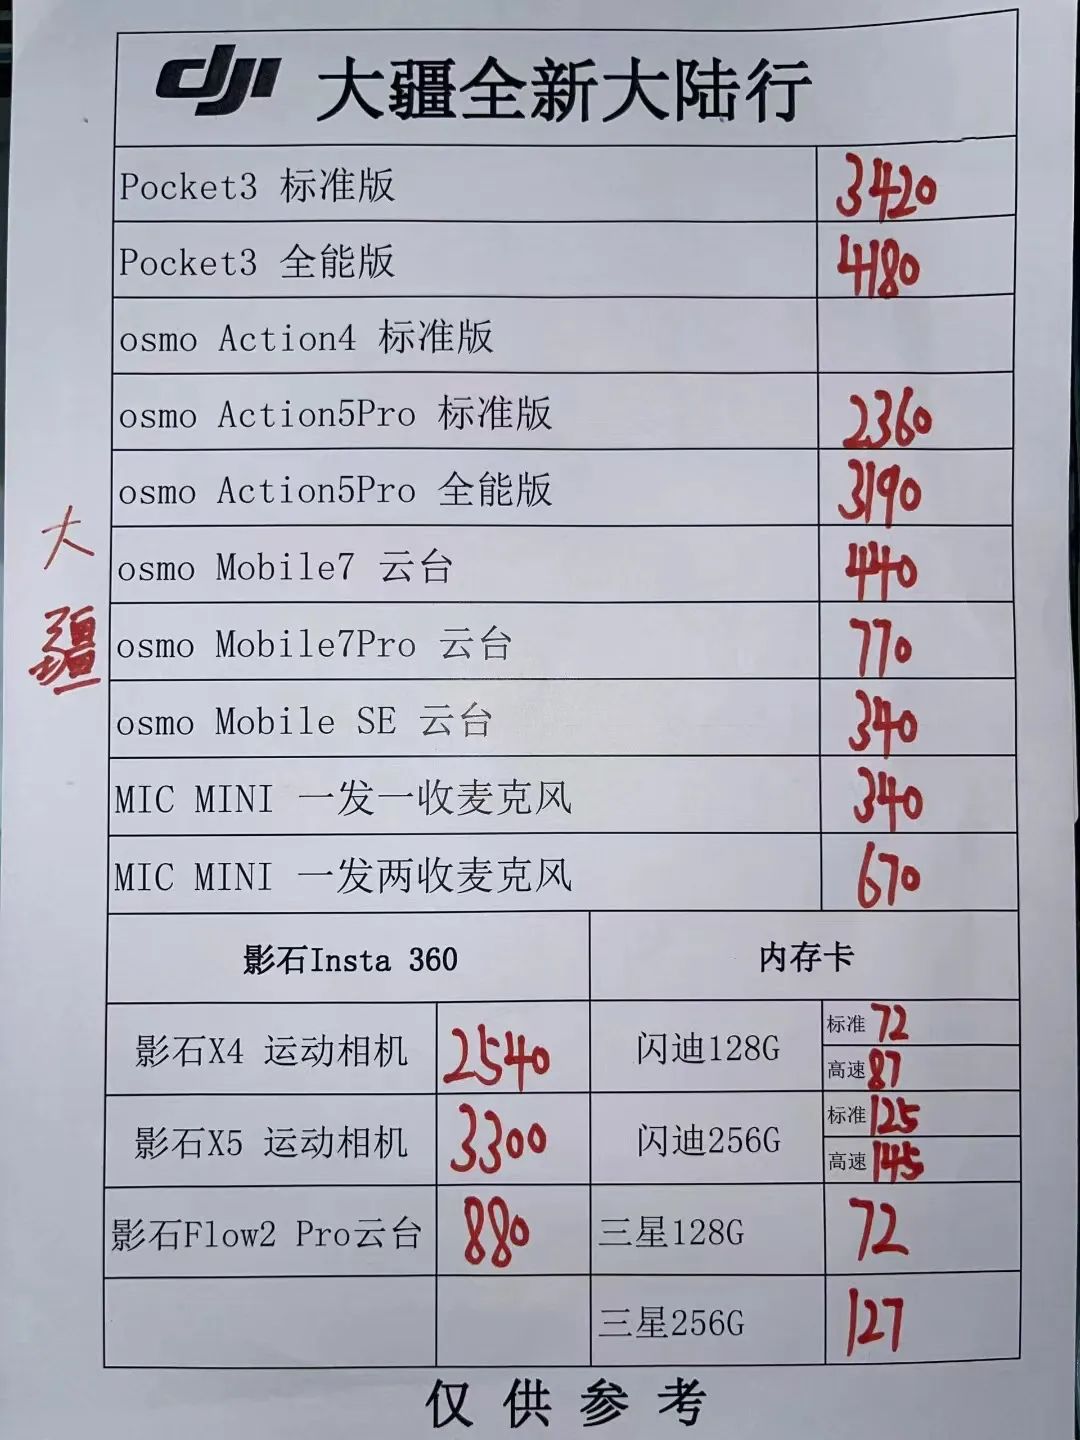 dji 大疆全新大陆行
Pocket3 标准版 3420
Pocket3 全能版 4180
osmo Action4 标准版
osmo Action5Pro 标准版 2360
osmo Action5Pro 全能版 3190
osmo Mobile7 云台 440
osmo Mobile7Pro 云台 770
osmo Mobile SE 云台 340
MIC MINI 一发一收麦克风 340
MIC MINI 一发两收麦克风 670
大疆
影石Insta 360 内存卡
影石X4 运动相机 2540 闪迪128G 标准 72
高速 87
影石X5 运动相机 3300 闪迪256G 标准 125
高速 145
影石Flow2 Pro云台 880 三星128G 72
三星256G 127
仅供参考